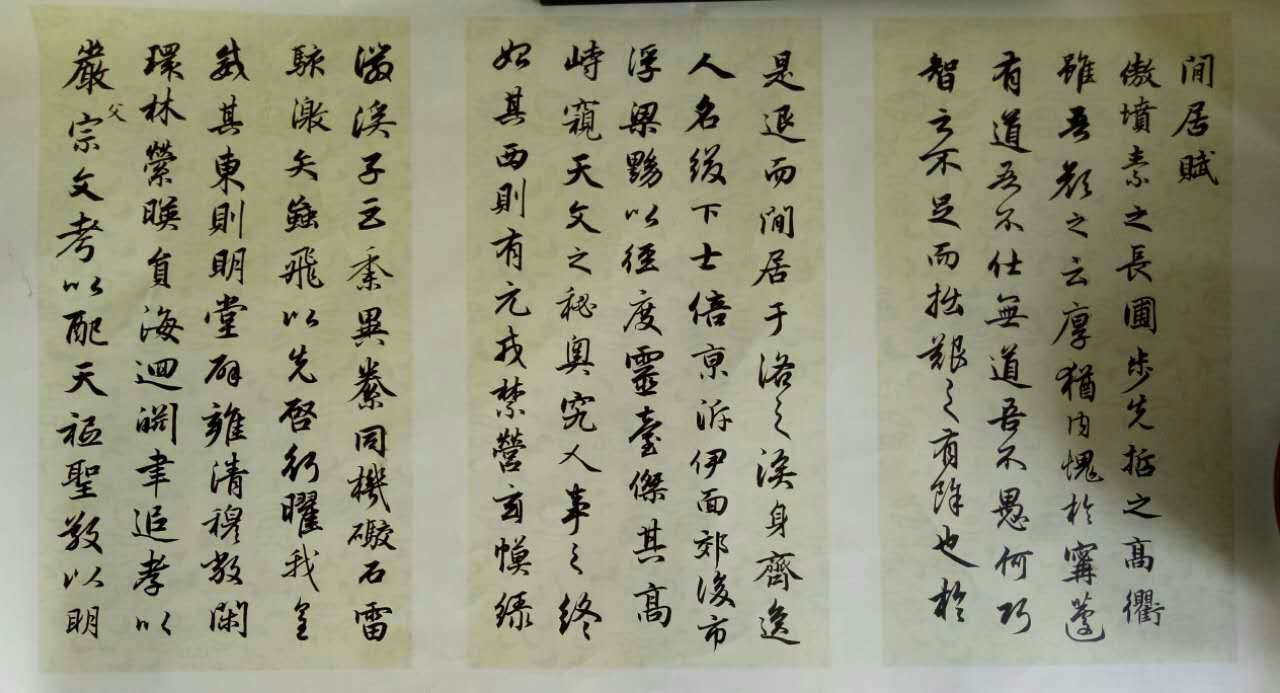 閒居賦
傲墳素之長圃步先哲之高衢
雖吾顏之云厚猶內愧於寗蘧
有道吾不仕無道吾不愚何巧
智之不足而拙艱之有餘也於
是退而閒居于洛之涘身齊逸
人名綴下士倍京泝伊面郊後市
浮梁黝以徑度靈臺傑其高
峙窺天文之秘奧究人事之終
始其西則有元戎禁營玄幙綠
徽溪子巨黍異絭同機礮石雷
駭激矢蝱飛以先啓行曜我皇
威其東則明堂辟雍清穆敞閑
環林縈暎負海迴淵聿追孝以
嚴父宗文考以配天祗聖敬以明